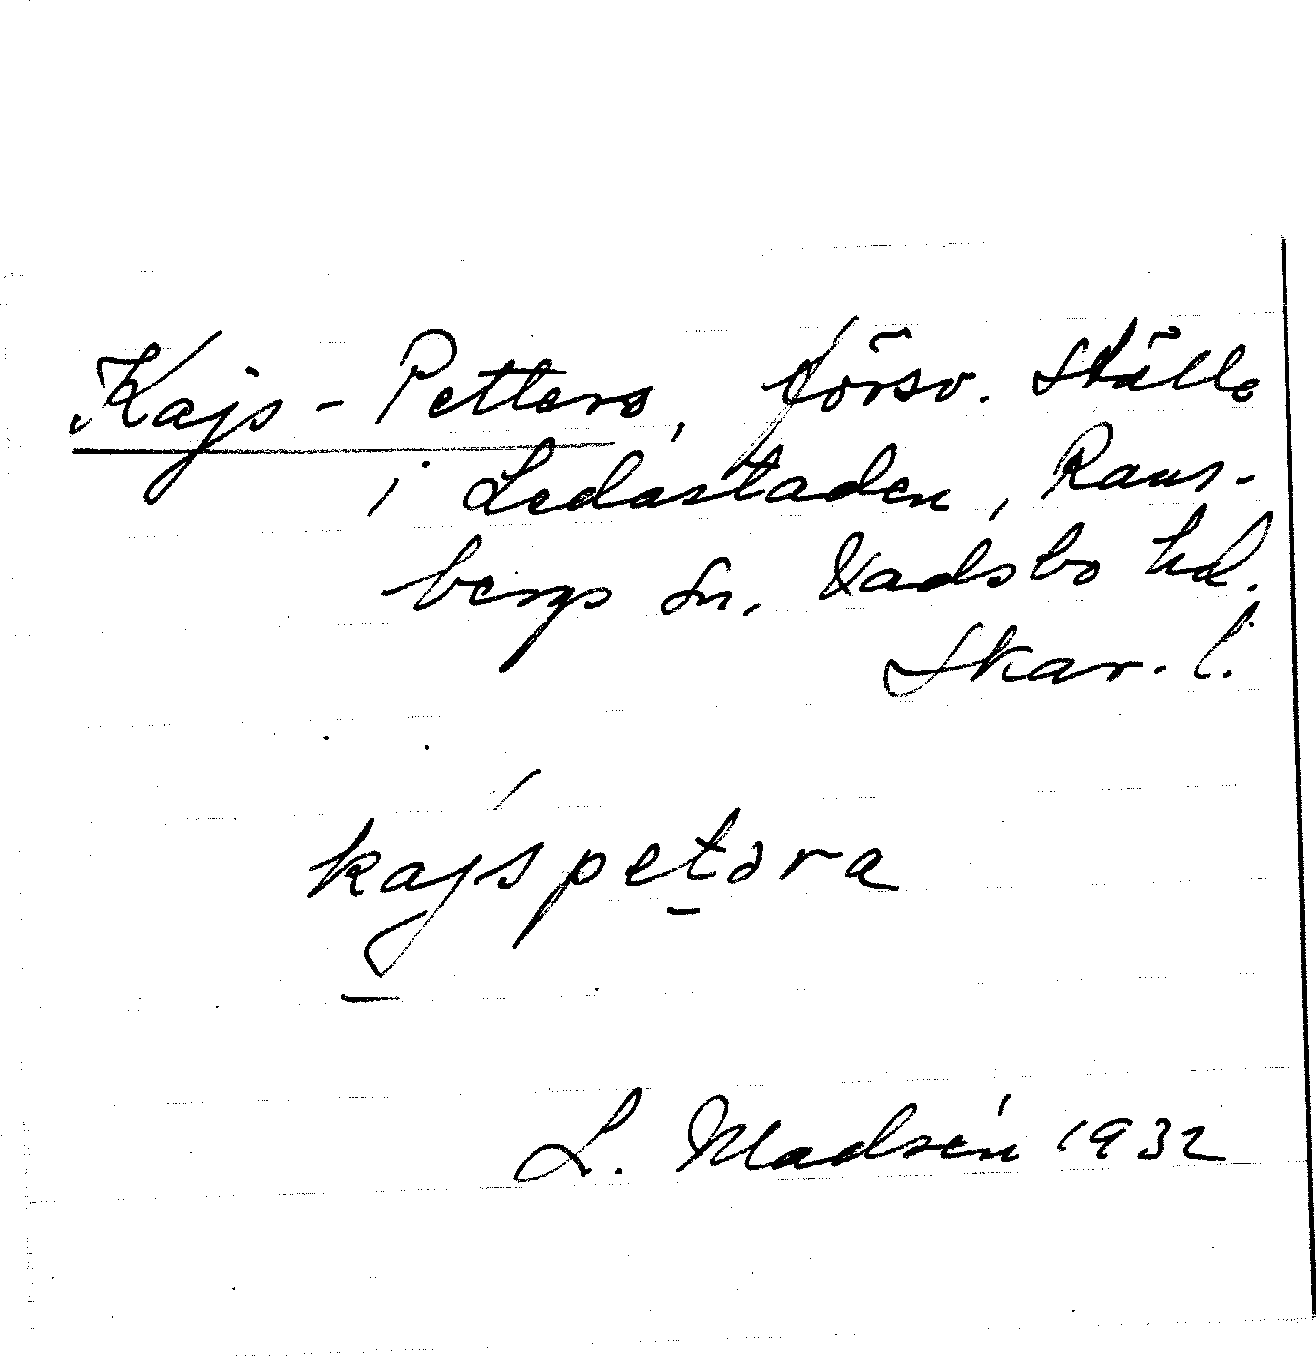 Kajs-Petters, försv. ställe
i Ledastaden, Rans-
bergs sn. Vadsbo hd.
Skar. l.
kajspetəra
L. Madsén 1932